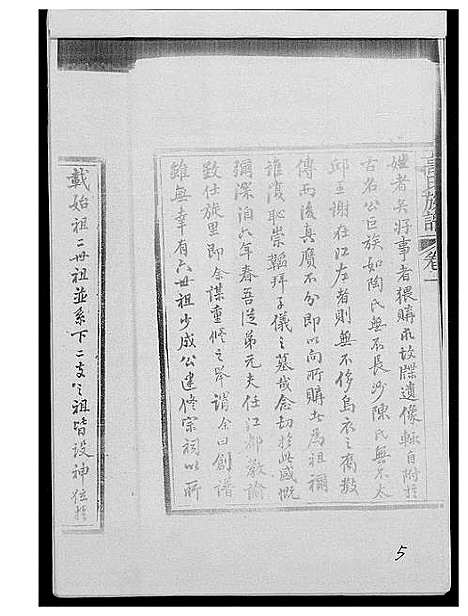 氏族譜 卷一
姓者矣好事者猥購市故牒遺像輒自附於
古名公巨族如陶氏無不長沙陳氏無不太
邱王謝在江左者則無不侈烏衣之裔數
傳而後真贗不分即以向所購者為祖禰
誰復恥崇韜拜子儀之墓哉念切於此感慨
彌深洎八年春吾從弟元夫任江都教諭
致仕旋里即余謀重修之舉謂余曰創譜
雖無幸有六世祖少咸公建修宗祠以所
載始祖二世祖並系下二支之祖皆設神位於
5